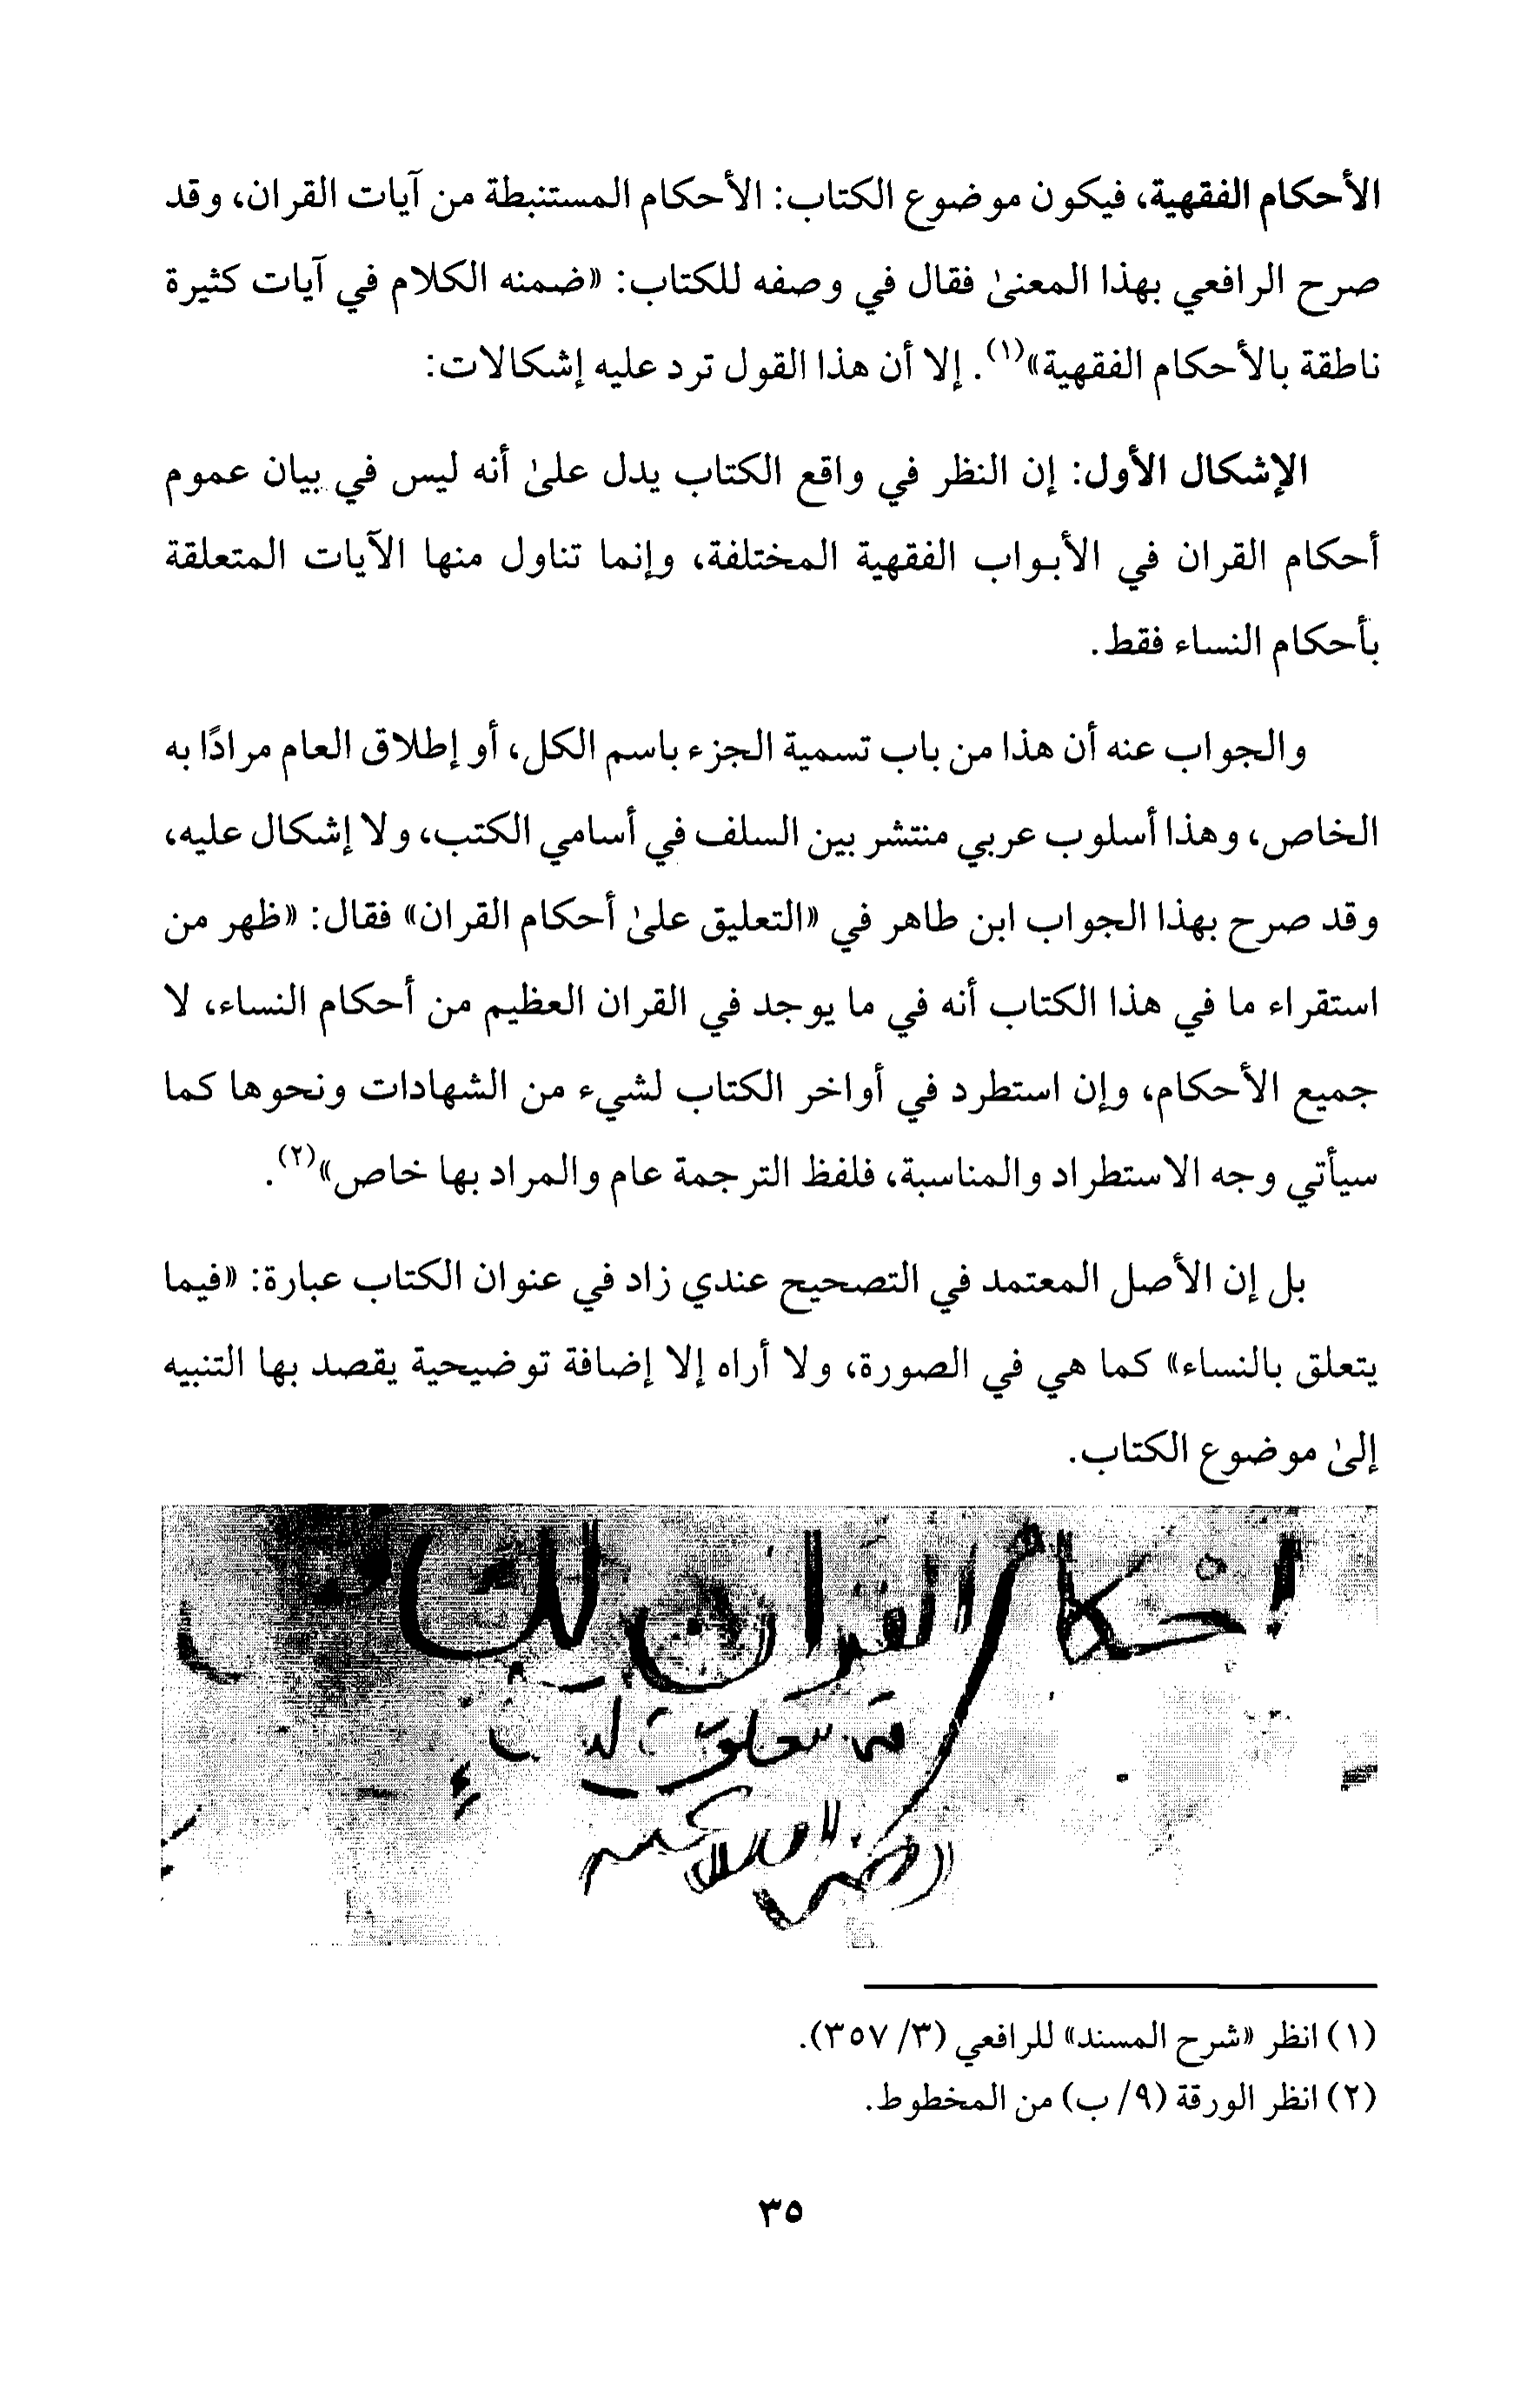 الأحكام الفقهية، فيكون موضوع الكتاب: الأحكام المستنبطة من آيات القران، وقد
صرح الرافعي بهذا المعنىٰ فقال في وصفه للكتاب: «ضمنه الكلام في آيات كثيرة
ناطقة بالأحكام الفقهية»(١). إلا أن هذا القول ترد عليه إشكالات:
الإشكال الأول: إن النظر في واقع الكتاب يدل علىٰ أنه ليس في بيان عموم
أحكام القران في الأبواب الفقهية المختلفة، وإنما تناول منها الآيات المتعلقة
بأحكام النساء فقط.
والجواب عنه أن هذا من باب تسمية الجزء باسم الكل، أو إطلاق العام مرادًا به
الخاص، وهذا أسلوب عربي منتشر بين السلف في أسامي الكتب، ولا إشكال عليه،
وقد صرح بهذا الجواب ابن طاهر في «التعليق علىٰ أحكام القران» فقال: «ظهر من
استقراء ما في هذا الكتاب أنه في ما يوجد في القران العظيم من أحكام النساء، لا
جميع الأحكام، وإن استطرد في أواخر الكتاب لشيء من الشهادات ونحوها كما
سيأتي وجه الاستطراد والمناسبة، فلفظ الترجمة عام والمراد بها خاص»(٢).
بل إن الأصل المعتمد في التصحيح عندي زاد في عنوان الكتاب عبارة: «فيما
يتعلق بالنساء» كما هي في الصورة، ولا أراه إلا إضافة توضيحية يقصد بها التنبيه
إلىٰ موضوع الكتاب.
احكام القران
(١) انظر «شرح المسند» للرافعي (٣/ ٣٥٧).
(٢) انظر الورقة (٩/ ب) من المخطوط.
٣٥